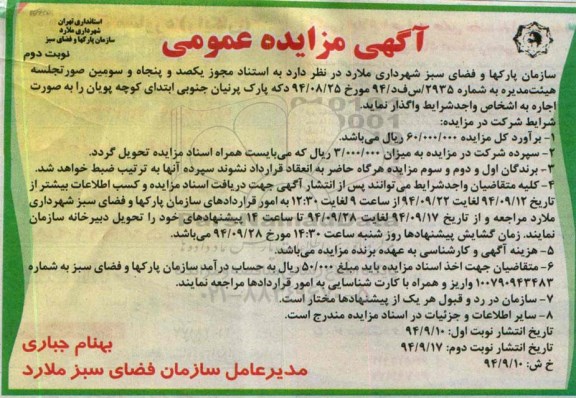 استانداری تهران
شهرداری ملارد
سازمان پارکها و فضای سبز
آگهی مزایده عمومی
نوبت دوم
سازمان پارکها و فضای سبز شهرداری ملارد در نظر دارد به استناد مجوز یکصد و پنجاه و سومین صورتجلسه
هیئت‌مدیره به شماره ۲۹۳۵/س‌ف‌د/۹۴ مورخ ۹۴/۰۸/۲۵ دکه پارک پرنیان جنوبی ابتدای کوچه پویان را به صورت
اجاره به اشخاص واجدشرایط واگذار نماید.
شرایط شرکت در مزایده:
۱- برآورد کل مزایده ۶۰/۰۰۰/۰۰۰ ریال می‌باشد.
۲- سپرده شرکت در مزایده به میزان ۳/۰۰۰/۰۰۰ ریال که می‌بایست همراه اسناد مزایده تحویل گردد.
۳- برندگان اول و دوم و سوم مزایده هرگاه حاضر به انعقاد قرارداد نشوند سپرده آنها به ترتیب ضبط خواهد شد.
۴- کلیه متقاضیان واجدشرایط می‌توانند پس از انتشار آگهی جهت دریافت اسناد مزایده و کسب اطلاعات بیشتر از
تاریخ ۹۴/۰۹/۱۲ لغایت ۹۴/۰۹/۲۲ از ساعت ۹ لغایت ۱۲:۳۰ به امور قراردادهای سازمان پارکها و فضای سبز شهرداری
ملارد مراجعه و از تاریخ ۹۴/۰۹/۱۷ لغایت ۹۴/۰۹/۲۸ تا ساعت ۱۴ پیشنهادهای خود را تحویل دبیرخانه سازمان
نمایند. زمان گشایش پیشنهادها روز شنبه ساعت ۱۴:۳۰ مورخ ۹۴/۰۹/۲۸ می‌باشد.
۵- هزینه آگهی و کارشناسی به عهده برنده مزایده می‌باشد.
۶- متقاضیان جهت اخذ اسناد مزایده باید مبلغ ۵۰/۰۰۰ ریال به حساب درآمد سازمان پارکها و فضای سبز به شماره
۱۰۰۷۹۰۹۴۳۴۸۳ واریز و همراه با کارت شناسایی به امور قراردادها مراجعه نمایند.
۷- سازمان در رد و قبول هر یک از پیشنهادها مختار است.
۸- سایر اطلاعات و جزئیات در اسناد مزایده مندرج است.
تاریخ انتشار نوبت اول: ۹۴/۹/۱۰
تاریخ انتشار نوبت دوم: ۹۴/۹/۱۷
خ ش: ۹۴/۹/۱۰
بهنام جباری
مدیرعامل سازمان فضای سبز ملارد